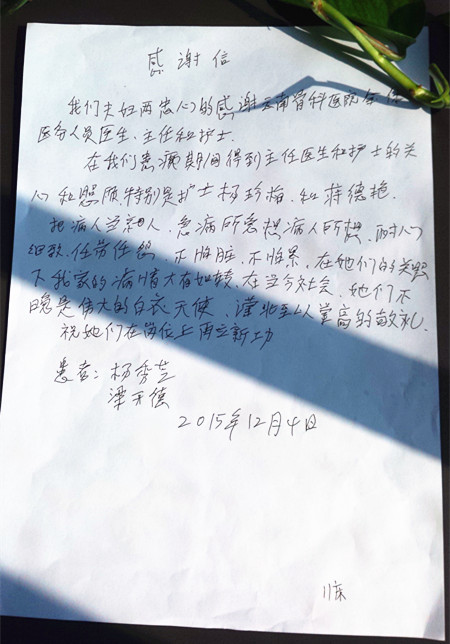 感谢信
我们夫妇两忠心的感谢云南骨科医院全体
医务人员医生、主任和护士.
在我们患病期间得到主任医生和护士的关
心和照顾,特别是护士杨珍梅、和蒋德艳.
把病人当亲人、急病所急想病人所想、耐心
细致、任劳任怨、不怕脏、不怕累、在她们的关照
下我家的病情大有好转、在当今社会、她们不
愧是伟大的白衣天使、谨此至以崇高的敬礼.
祝她们在岗位上再立新功
患者:杨秀芝
梁天德
2015年12月4日